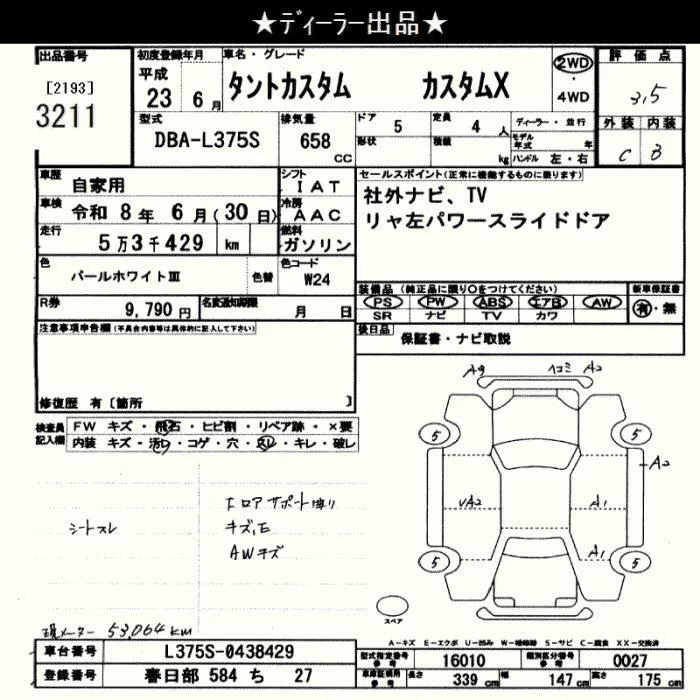 ★ディーラー出品★
出品番号
[2193]
3211
初度登録年月
平成
23 6 月
車名・グレード
タントカスタム カスタムX
2WD
・
4WD
評価点
3,5
外装 内装
C B
型式
DBA-L375S
排気量
658
CC
ドア
5
定員
4 人
形状
積載
kg
ディーラー・並行
モデル
年式 年
ハンドル 左・右
車歴
自家用
シフト
I A T
車検
令和 8 年 6 月(30 日)
冷房
A A C
走行
5 万 3 千 429 km
燃料
ガソリン
色
パールホワイトⅢ
色替
色コード
W24
R券
9,790 円
名変通知期限
月 日
セールスポイント(正常に機能するものに限ります)
社外ナビ、TV
リヤ左パワースライドドア
装備品(純正品に限り○をつけてください)
PS PW ABS エアB AW
SR ナビ TV カワ
新車保証書
有・無
後日品
保証書・ナビ取説
注意事項申告欄(不具合内容等は具体的に記入して下さい)
修復歴 有〔箇所 〕
検査員
記入欄
FW キズ・飛石・ヒビ割・リペア跡・×要
内装 キズ・汚レ・コゲ・穴・スレ・キレ・破レ
シートスレ
キズ,E
AWキズ
現メーター 53,064km
ヘコミ A2
5 5
A2
A1
A1
5 5
スペア
A-キズ E-エクボ U-凹み W-補修跡 S-サビ C-腐食 XX-交換済
車台番号
L375S-0438429
登録番号
春日部 584 ち 27
型式指定番号
参考
16010
類別区分番号
参考
0027
車庫証明用
参考
長さ
339 cm
幅
147 cm
高さ
175 cm